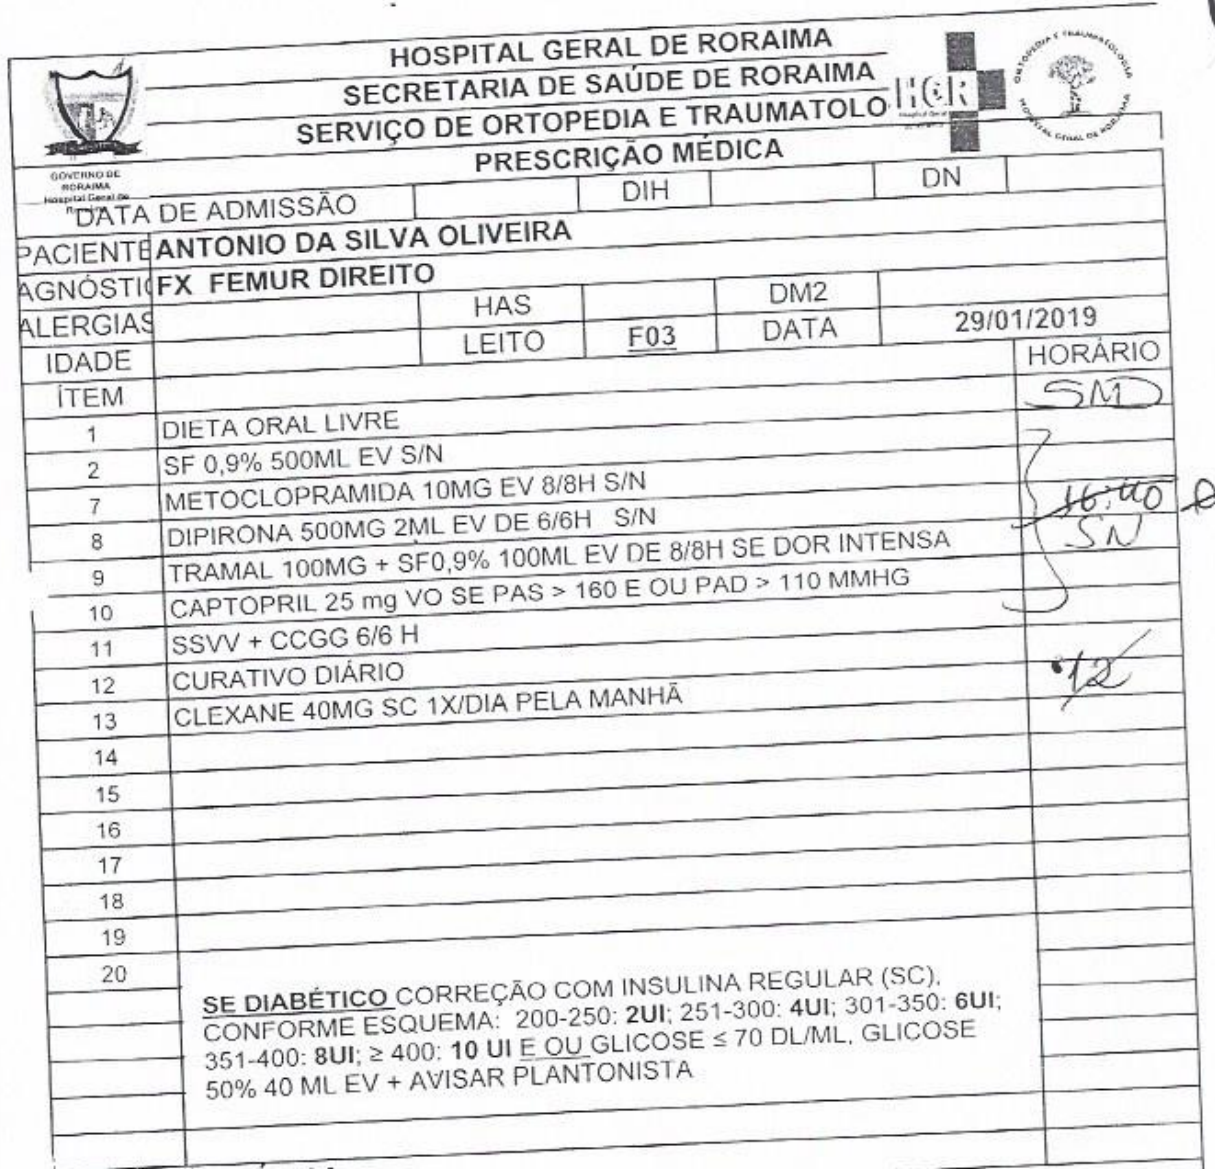 HOSPITAL GERAL DE RORAIMA
SECRETARIA DE SAÚDE DE RORAIMA
SERVIÇO DE ORTOPEDIA E TRAUMATOLO
HGR
Hospital Geral
ORTOPEDIA E TRAUMATOLOGIA
HOSPITAL GERAL DE RORAIMA
PRESCRIÇÃO MÉDICA
GOVERNO DE
RORAIMA
Hospital Geral de
DATA DE ADMISSÃO DIH DN
PACIENTE ANTONIO DA SILVA OLIVEIRA
AGNÓSTIC FX FEMUR DIREITO
ALERGIAS HAS DM2
IDADE LEITO F03 DATA 29/01/2019
ÍTEM HORÁRIO
1 DIETA ORAL LIVRE SMD
2 SF 0,9% 500ML EV S/N
7 METOCLOPRAMIDA 10MG EV 8/8H S/N
8 DIPIRONA 500MG 2ML EV DE 6/6H S/N 16:40
9 TRAMAL 100MG + SF0,9% 100ML EV DE 8/8H SE DOR INTENSA SN
10 CAPTOPRIL 25 mg VO SE PAS > 160 E OU PAD > 110 MMHG
11 SSVV + CCGG 6/6 H
12 CURATIVO DIÁRIO
13 CLEXANE 40MG SC 1X/DIA PELA MANHÃ 12
14
15
16
17
18
19
20
SE DIABÉTICO CORREÇÃO COM INSULINA REGULAR (SC),
CONFORME ESQUEMA: 200-250: 2UI; 251-300: 4UI; 301-350: 6UI;
351-400: 8UI; ≥ 400: 10 UI E OU GLICOSE ≤ 70 DL/ML, GLICOSE
50% 40 ML EV + AVISAR PLANTONISTA